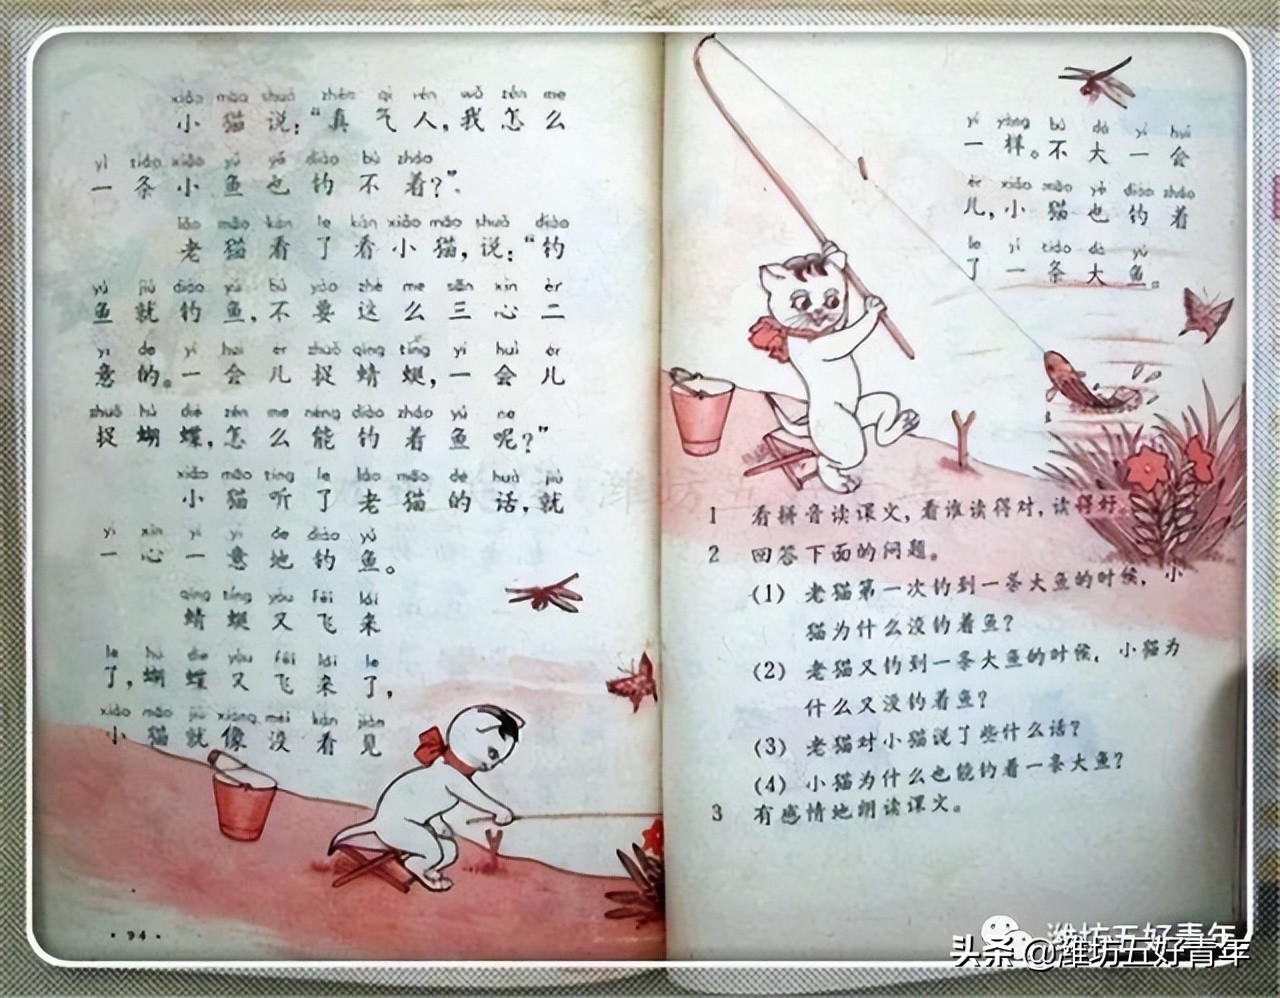 xiǎo māo shuō zhēn qì rén wǒ zěn me
小猫说：“真气人，我怎么
yì tiáo xiǎo yú yě diào bù zháo
一条小鱼也钓不着？”。
lǎo māo kàn le kàn xiǎo māo shuō diào
老猫看了看小猫，说：“钓
yú jiù diào yú bú yào zhè me sān xīn èr
鱼就钓鱼，不要这么三心二
yì de yí huì ér zhuō qīng tíng yí huì ér
意的。一会儿捉蜻蜓，一会儿
zhuō hú dié zěn me néng diào zháo yú ne
捉蝴蝶，怎么能钓着鱼呢？”
xiǎo māo tīng le lǎo māo de huà jiù
小猫听了老猫的话，就
yì xīn yí yì de diào yú
一心一意地钓鱼。
qīng tíng yòu fēi lái
蜻蜓又飞来
le hú dié yòu fēi lái le
了，蝴蝶又飞来了，
xiǎo māo jiù xiàng méi kàn jiàn
小猫就像没看见
·94·
yí yàng bú dà yí huì
一样。不大一会
ér xiǎo māo yě diào zháo
儿，小猫也钓着
le yì tiáo dà yú
了一条大鱼。
1 看拼音读课文，看谁读得对，读得好。
2 回答下面的问题。
(1) 老猫第一次钓到一条大鱼的时候，小
猫为什么没钓着鱼？
(2) 老猫又钓到一条大鱼的时候，小猫为
什么又没钓着鱼？
(3) 老猫对小猫说了些什么话？
(4) 小猫为什么也能钓着一条大鱼？
3 有感情地朗读课文。
潍坊五好青年
头条 @潍坊五好青年